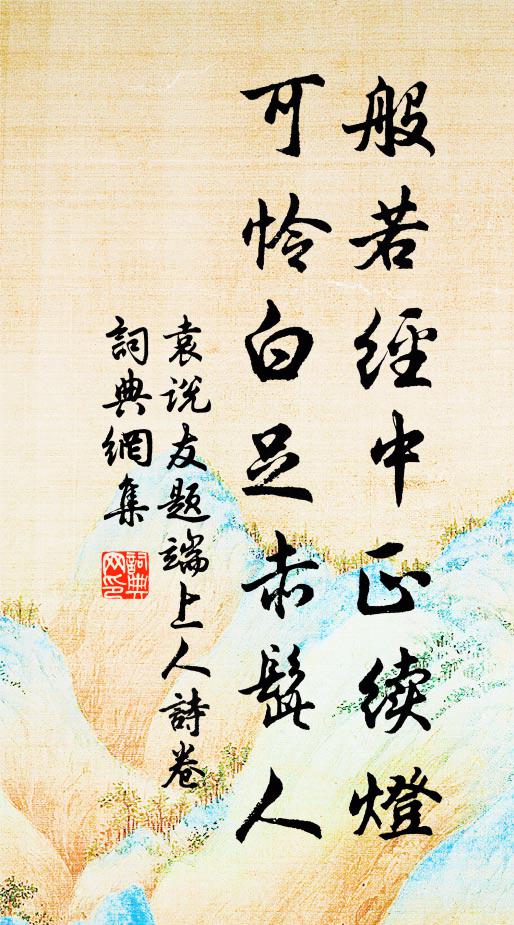 般若經中正续燈
可怜白足赤髭人
袁说友题端上人詩卷
詞典網集
詞典
网印